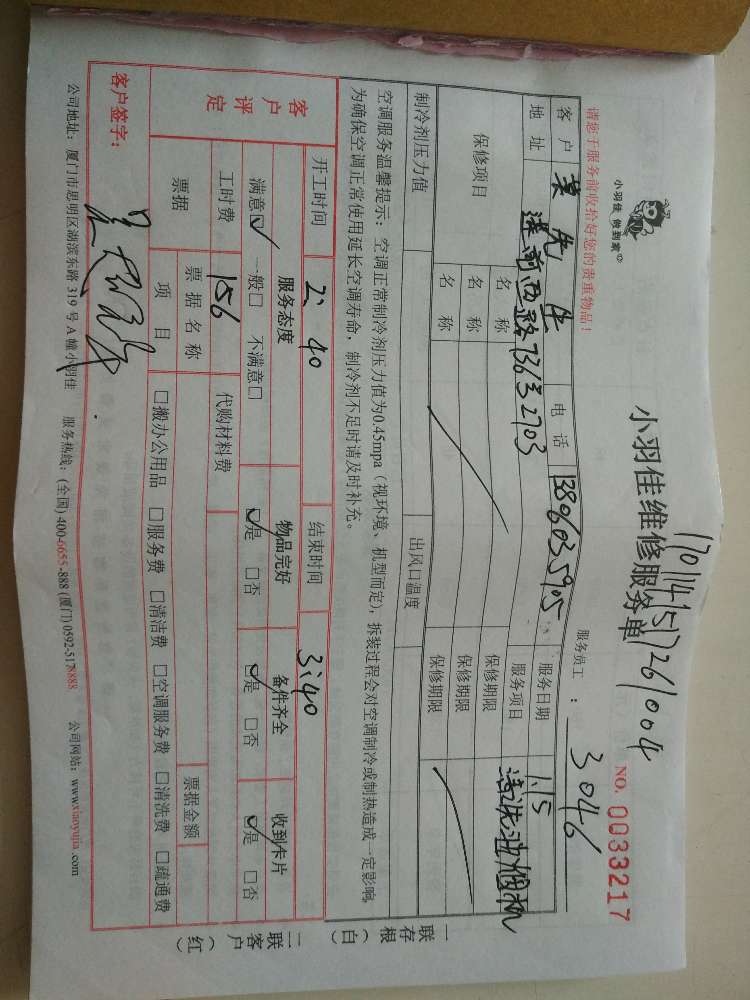 小羽佳 做到家
请您于服务前收拾好您的贵重物品！
1701141517261004
小羽佳维修服务单
NO. 0033217
服务员工 ： 3046
客户 先生 电话 13806035905 服务日期 1.15
地址 服务项目 清洗油烟机
保修项目 名称 保修期限
名称 保修期限
名称 保修期限
制冷剂压力值 出风口温度
空调服务温馨提示：空调正常制冷剂压力值为0.45mpa（视环境、机型而定），拆装过程会对空调制冷或制热造成一定影响，
为确保空调正常使用延长空调寿命，制冷剂不足时请及时补充。
开工时间 2:40 结束时间 3:40
客户评定 服务态度 物品完好 备件齐全 收到卡片
满意☑ 一般□ 不满意□ ☑是 □否 ☑是 □否 ☑是 □否
工时费 156 代购材料费
票据 票据名称 票据金额
项目 □搬办公用品 □服务费 □清洁费 □空调服务费 □清洗费 □疏通费
客户签字：
公司地址：厦门市思明区湖滨东路319号A幢小羽佳 服务热线：(全国) 400-6655-888 (厦门) 0592-5178888 公司网站：www.xiaoyujia.com
一联存根（白）
二联客户（红）